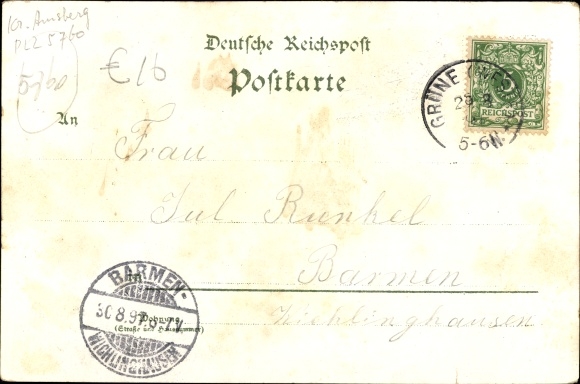 Kr. Arnsberg
PLZ 5760
5760
€ 16
Deutsche Reichspost
Postkarte
An
Frau
Jul Runkel
Barmen
Wichlinghausen
in
Wohnung
(Straße und Hausnummer)
GRÜNE (WESTF
5-6N
5
REICHSPOST
BARMEN-
30.8.97. 8-9V
WICHLINGHAUSEN